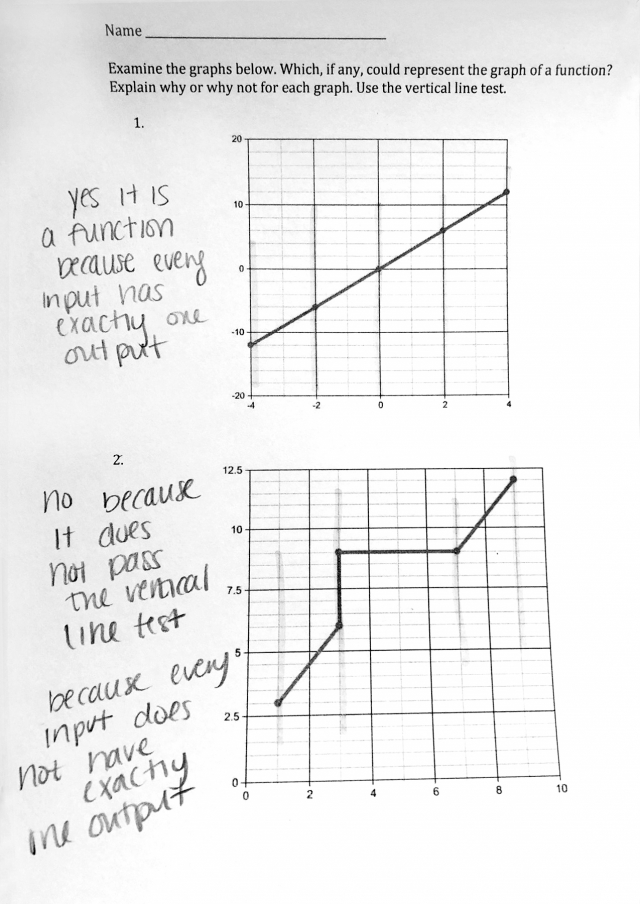 Name
Examine the graphs below. Which, if any, could represent the graph of a function?
Explain why or why not for each graph. Use the vertical line test.
1.
yes it is
a function
because every
input has
exactly one
output
20
10
0
-10
-20
-4 -2 0 2 4
2.
no because
It does
not pass
the vertical
line test
because every
input does
not have
exactly
one output
12.5
10
7.5
5
2.5
0
0 2 4 6 8 10